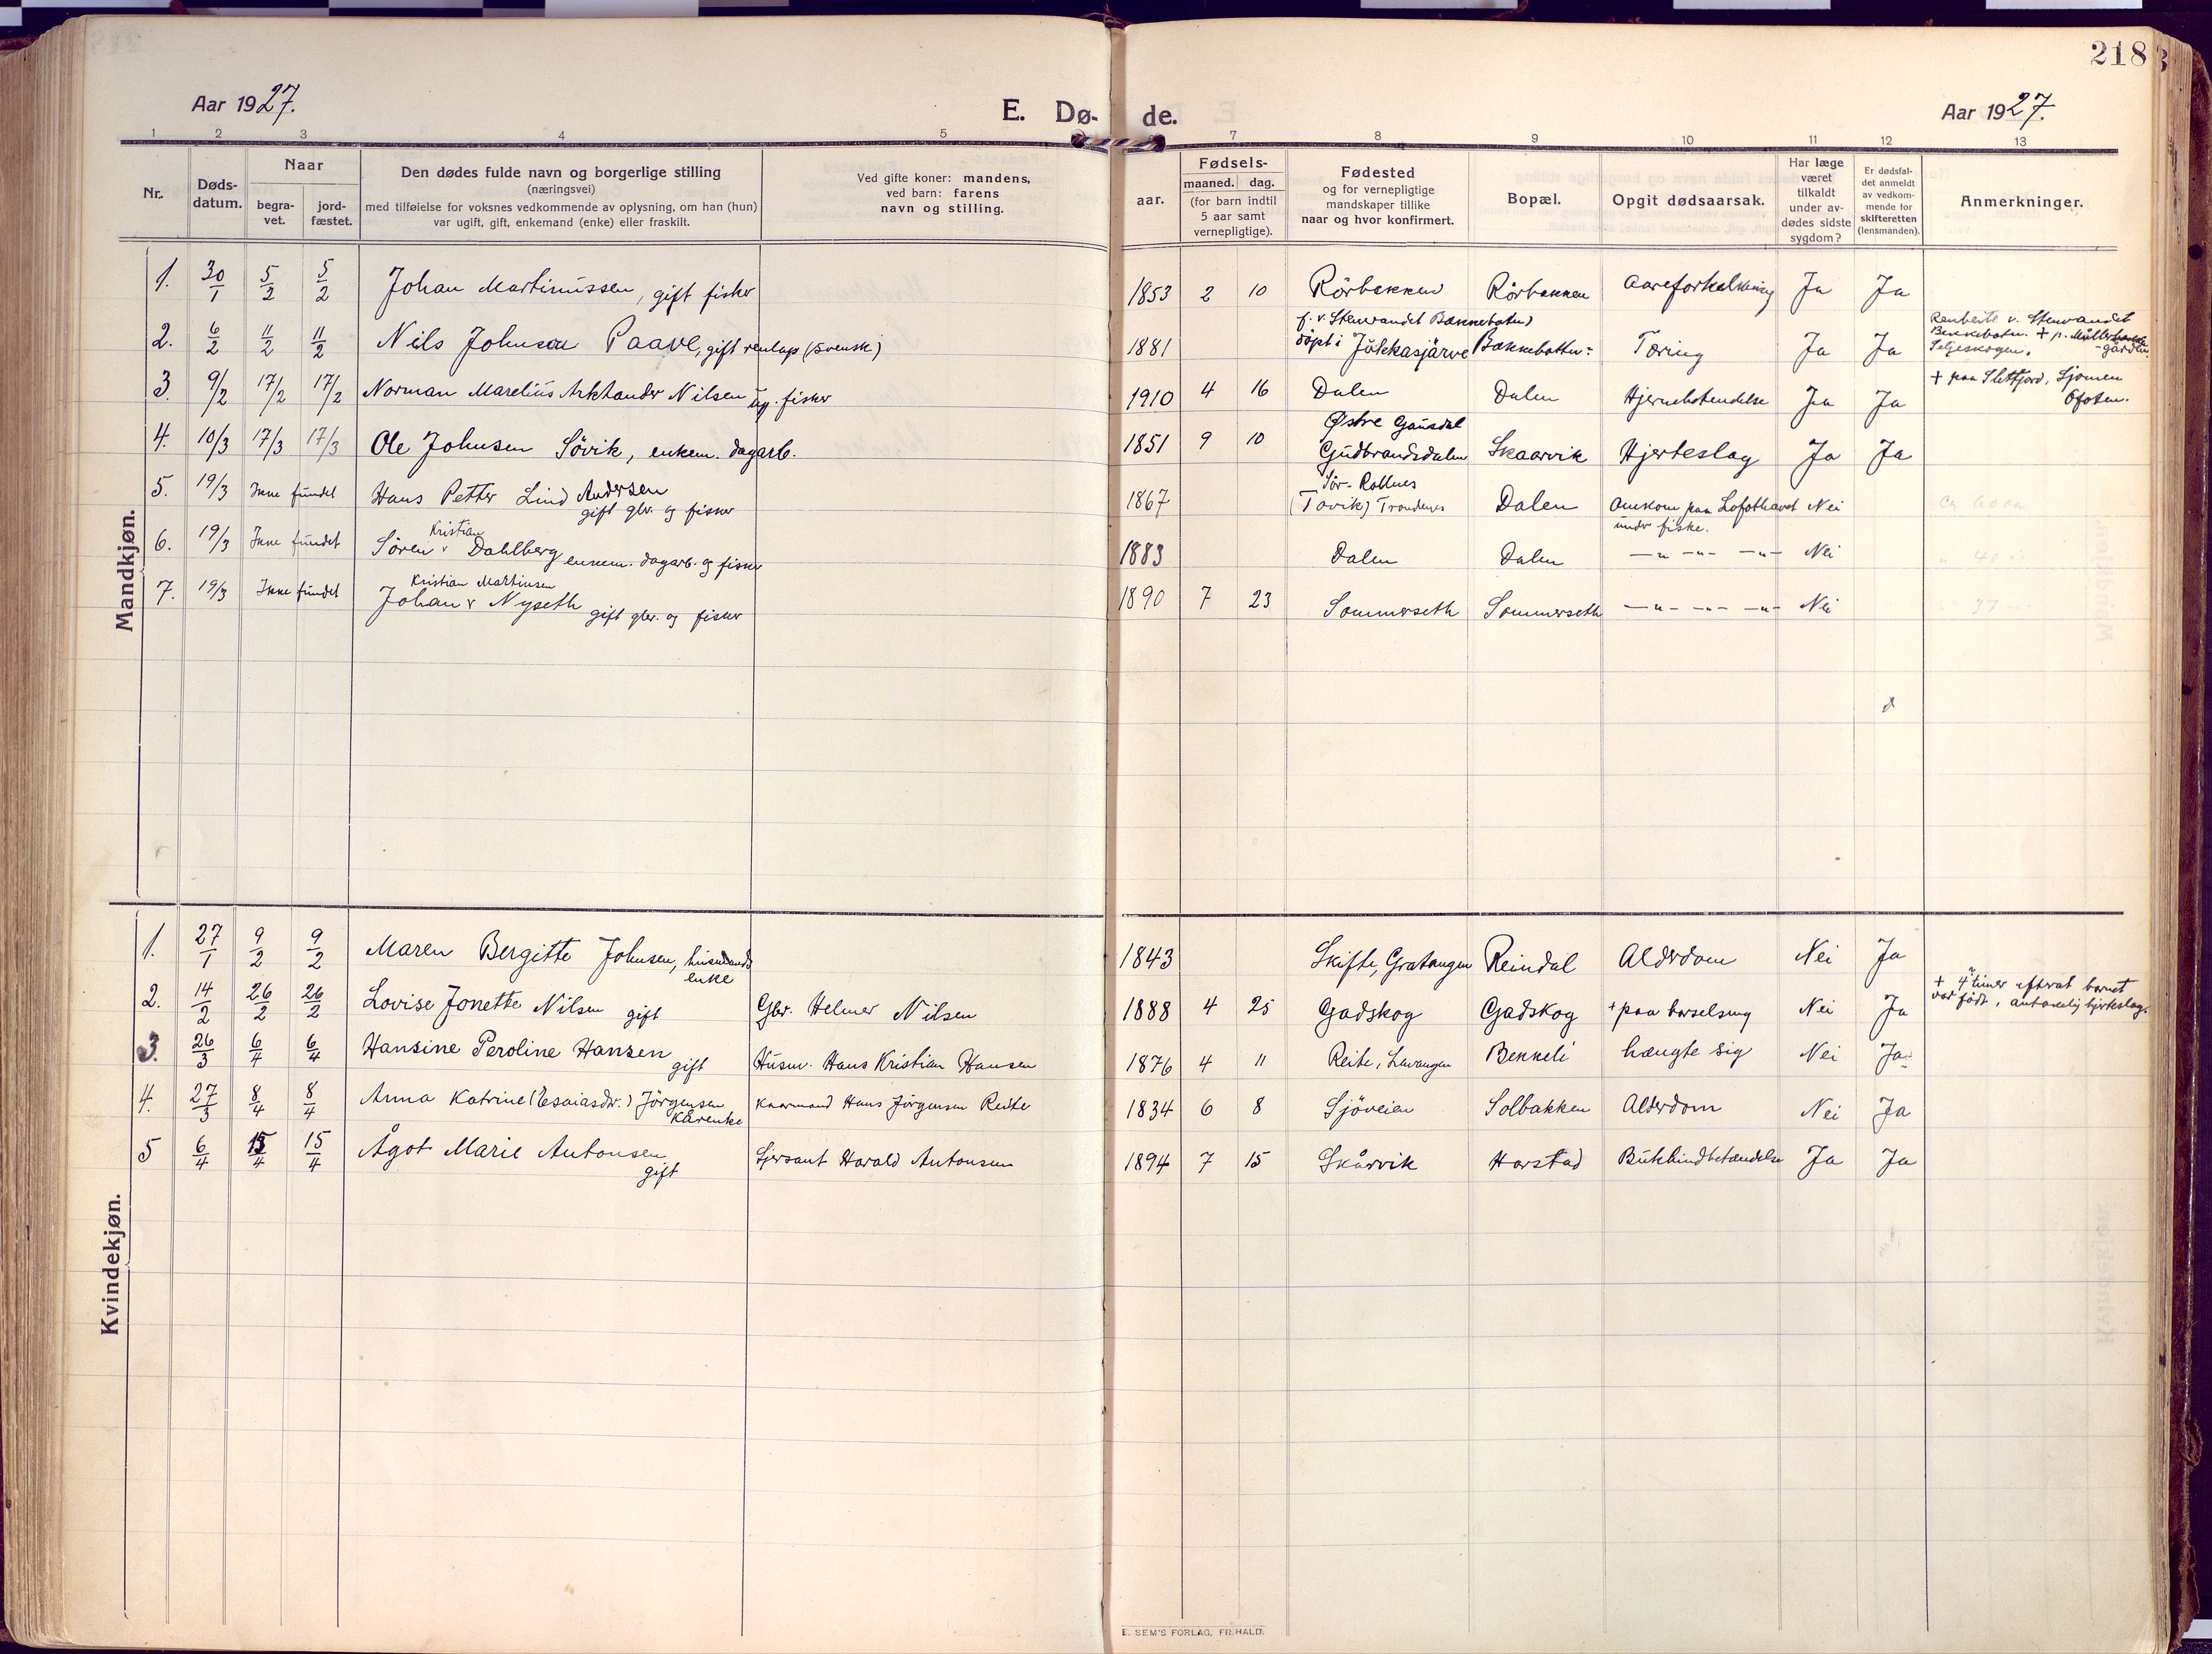 218
Aar 1927.
E. Dø- de.
Aar 1927.
1 2 3 4 5 7 8 9 10 11 12 13
Nr.
Døds-
datum.
Naar
begra-
vet.
jord-
fæstet.
Den dødes fulde navn og borgerlige stilling
(næringsvei)
med tilføielse for voksnes vedkommende av oplysning, om han (hun)
var ugift, gift, enkemand (enke) eller fraskilt.
Ved gifte koner: mandens,
ved barn: farens
navn og stilling.
Fødsels-
aar.
maaned. dag.
(for barn indtil
5 aar samt
vernepligtige).
Fødested
og for vernepligtige
mandskaper tillike
naar og hvor konfirmert.
Bopæl.
Opgit dødsaarsak.
Har læge
været
tilkaldt
under av-
dødes sidste
sygdom?
Er dødsfal-
det anmeldt
av vedkom-
mende for
skifteretten
(lensmanden).
Anmerkninger.
Mandkjøn.
1. 30/1 5/2 5/2 Johan Martinussen, gift fisker 1853 2 10 Rörbakken Rörbakken Aareforkalkning Ja Ja
2. 6/2 11/2 11/2 Nils Johnsen Paave, gift renlap (svensk) 1881 f. v. Stenvandet Bækkebotn)
döpt i Jukkasjärve Bækkebotten Tæring Ja Ja Renbeite v. Stenvandet
Bekkebotn. + p.
Seljeskogen.
3. 9/2 17/2 17/2 Norman Marelius Arkhander Nilsen ug. fisker 1910 4 16 Dalen Dalen Hjernebetendelse Ja Ja + paa Slettfjord, Sjomen
Ofoten.
4. 10/3 17/3 17/3 Ole Johnsen Sövik, enkem. dagarb. 1851 9 10 Østre Gausdal
Gudbrandsdalen Skaarvik Hjerteslag Ja Ja
5. 19/3 Ikke fundet Hans Petter Lind Andersen
gift gbr. og fisker 1867 Sör-Rollnes
(Tovik) Trondenes Dalen Omkom paa Lofothavet
under fiske. Nei
6. 19/3 Ikke fundet Sören Kristian Dahlberg enkem. dagarb. og fisker 1883 Dalen Dalen —"— —"— —"— Nei 40
7. 19/3 Ikke fundet Kristian Martinsen
Johan Nyseth gift gbr. og fisker 1890 7 23 Sommerseth Sommerseth —"— —"— —"— Nei 37
Kvindekjøn.
1. 27/1 9/2 9/2 Maren Bergitte Johnsen, husmands
enke 1843 Skifte, Gratangen Reindal Alderdom Nei Ja
2. 14/2 26/2 26/2 Lovise Jonette Nilsen gift Gbr. Helmer Nilsen 1888 4 25 Gadskog Gadskog + paa barselseng Nei Ja + 4 timer efterat barnet
var födt, antakelig hjerteslag.
3. 26/3 6/4 6/4 Hansine Peroline Hansen gift Husm. Hans Kristian Hansen 1876 4 11 Reite, Lavangen Bekkeli hængte sig Nei Ja
4. 27/3 8/4 8/4 Anna Katrine (Esaiasdtr.) Jörgensen
Kårenke Kaarmand Hans Jörgensen Reite 1834 6 8 Sjöveien Solbakken Alderdom Nei Ja
5 6/4 15/4 15/4 Ågot Marie Antonsen
gift Sjersant Harald Antonsen 1894 7 15 Skårvik Harstad Bukhindbetændelse Ja Ja
E. SEM'S FORLAG, FR.HALD.